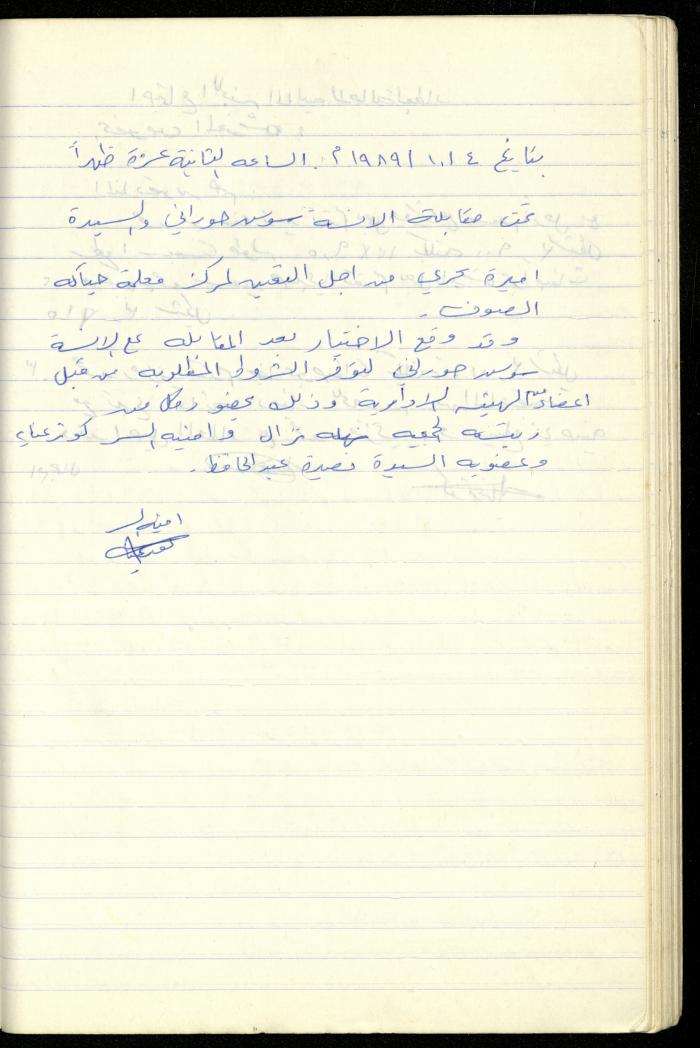 بتاريخ ١٠/٤/ ١٩٨٩م. الساعه الثانية عشرة ظهراً
تمت مقابلة الانسة سوسن حوراني والسيدة
اميرة بحري من اجل التعيين لمركز معلمة حياكه
الصوف.
وقد وقع الاختيار بعد المقابله على الانسة
سوسن حوراني لتوفر الشروط المطلوبه من قبل
اعضاء الهيئه الادارية وذلك بحضور كل من
رئيسه الجمعيه نهله نزال وامنيه السر كوثر
وعضويه السيدة نصيرة عبدالحافظ.
امينه السر